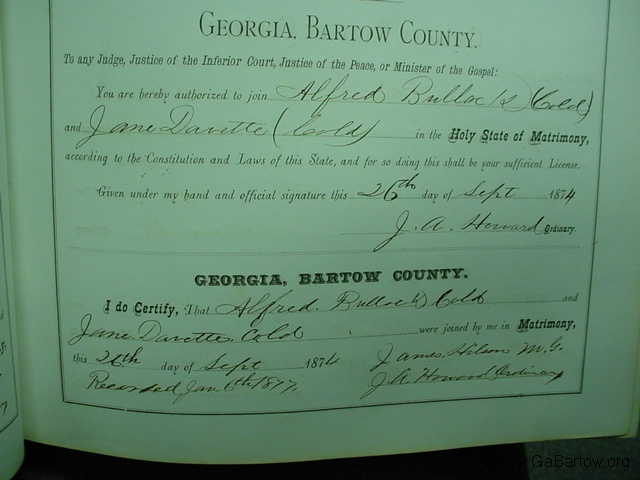 GEORGIA, BARTOW COUNTY.
To any Judge, Justice of the Inferior Court, Justice of the Peace, or Minister of the Gospel:
You are hereby authorized to join Alfred Bullock (Cold)
and Jane Davette (Cold) in the Holy State of Matrimony,
according to the Constitution and Laws of this State, and for so doing this shall be your sufficient License.
Given under my hand and official signature this 26th day of Sept 1874
J. A. Howard Ordinary.
GEORGIA, BARTOW COUNTY.
I do Certify, That Alfred Bullock Cold and
Jane Davette Cold were joined by me in Matrimony,
this 26th day of Sept 1874 James Hilson M.G.
Recorded Jan 6th 1877. J. A. Howard Ordinary
GaBartow.org